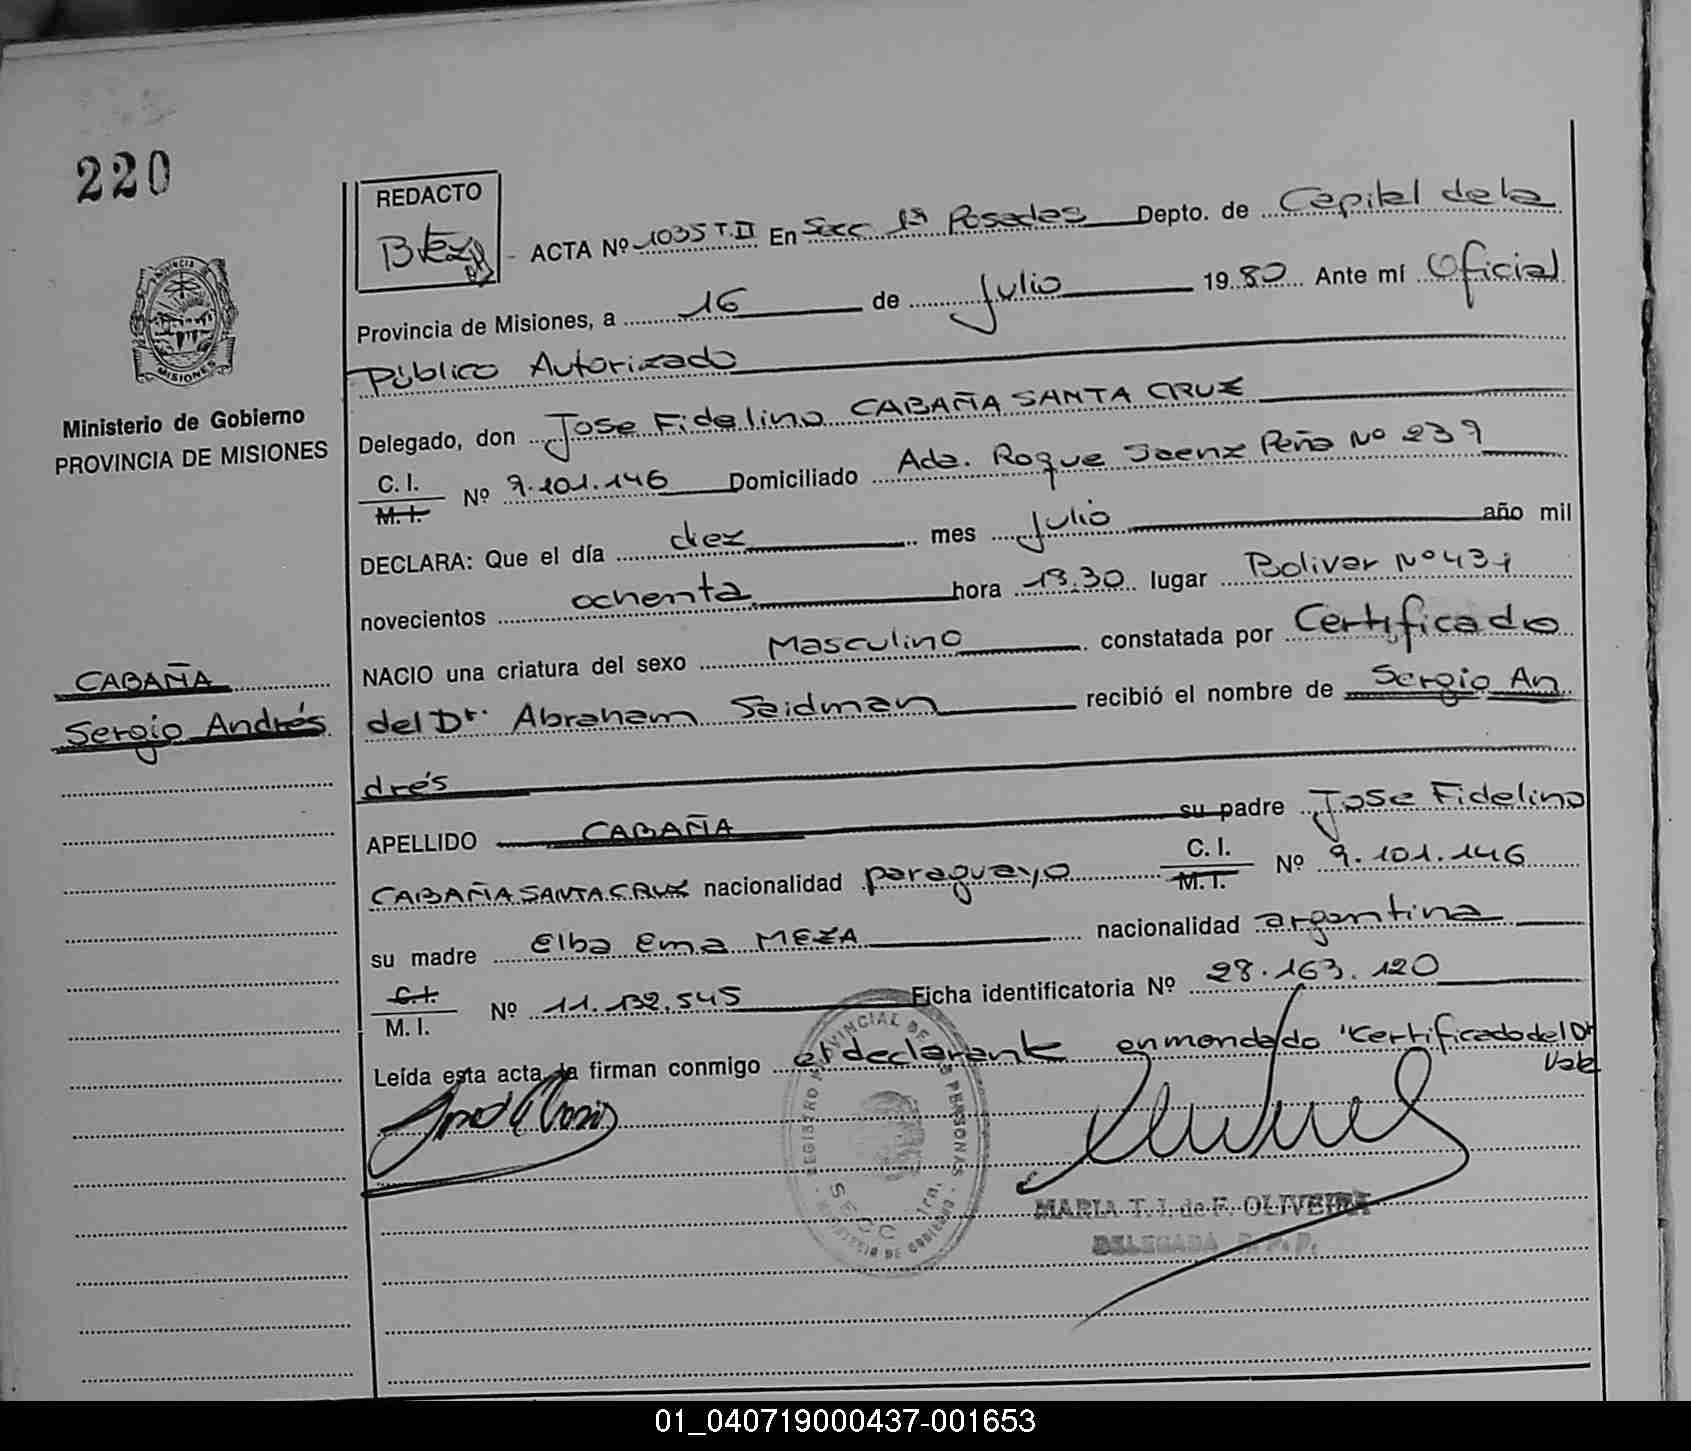 220
REDACTO
ACTA Nº 1035 T.II En Secc 1ª Posadas Depto. de Capital de la
Provincia de Misiones, a 16 de Julio 1980 Ante mí Oficial
Público Autorizado
MISIONES
Ministerio de Gobierno
PROVINCIA DE MISIONES
Delegado, don Jose Fidelino CABAÑA SANTA CRUZ
C. I.
M. I.
Nº 9.101.146 Domiciliado Ada. Roque Saenz Peña Nº 239
DECLARA: Que el día diez mes Julio año mil
novecientos ochenta hora 19.30 lugar Bolivar Nº 431
NACIO una criatura del sexo Masculino constatada por Certificado
CABAÑA
Sergio Andrés
del Dr. Abraham Seidman recibió el nombre de Sergio An
drés
APELLIDO CABAÑA su padre Jose Fidelino
CABAÑA SANTA CRUZ nacionalidad paraguayo C. I. M. I. Nº 9.101.146
su madre Elba Ema MEZA nacionalidad argentina
C. I.
M. I.
Nº 11.132.545 Ficha identificatoria Nº 28.163.120
Leída esta acta la firman conmigo el declarante enmendado "Certificado del Dr
Vale
REGISTRO PROVINCIAL DE PERSONAS
SECC. 1ra.
MARIA T. J. de F. OLIVEIRA
DELEGADA R. P. P.
01_040719000437-001653